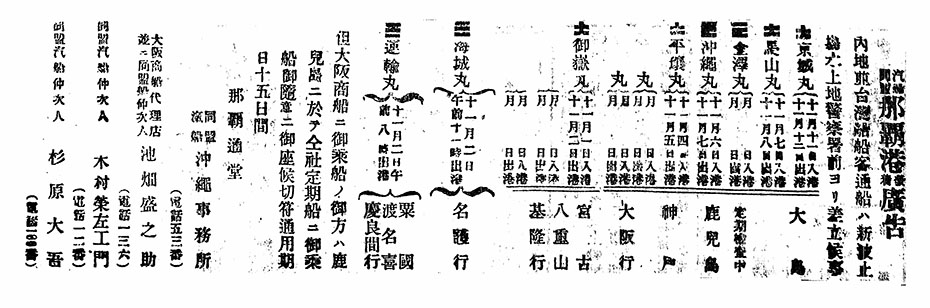 汽船同盟 那覇港發着廣告
内地臺灣諸船客通船ハ新波止
場水上地警察署前ヨリ差立候事
京城丸 十一月十一日入港 十一月十二日出港 大島
黒山丸 十一月七日入港 十一月八日出港
金澤丸 月 日入港 月 日出港 定期檢査中
沖繩丸 十一月六日入港 十一月七日出港 鹿兒島
平壤丸 十一月四日入港 十一月五日出港 神戸
丸 月 日入港 月 日出港 大阪行
御嶽丸 十一月一日入港 十一月二日出港 宮古
月 日入港 月 日出港 八重山
月 日入港 月 日出港 基隆行
海城丸 十一月二日午前十一時出港 名護行
運輸丸 十一月二日午前八時出港 粟國 渡名喜 慶良間行
但大阪商船ニ御乘船ノ御方ハ鹿
兒島ニ於テ仝社定期船ニ御乘
船御隨意ニ御座候切符通用期
日十五日間
那覇通堂
同盟汽船 沖繩事務所
(電話五三番)
大阪商船代理店並ニ同盟船仲次人 池畑盛之助
(電話一三六)
同盟汽船仲次人 木村榮左工門
(電話一二番)
同盟汽船仲次人 杉原大吾